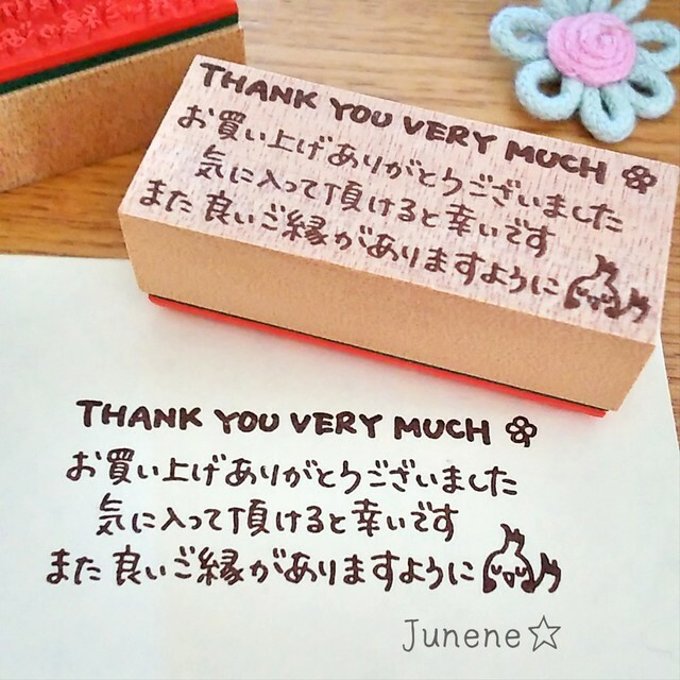 THANK YOU VERY MUCH
お買い上げありがとうございました
気に入って頂けると幸いです
また良いご縁がありますように
THANK YOU VERY MUCH
お買い上げありがとうございました
気に入って頂けると幸いです
また良いご縁がありますように
Junene☆